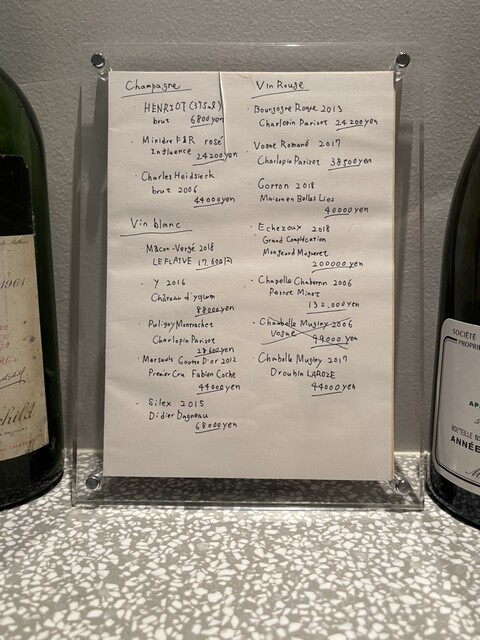 Champagne
· HENRIOT (375ml)
brut 6800yen
· Minière F&R rosé
Influence 24200yen
· Charles Heidsieck
brut 2006
44000yen
Vin blanc
· Mâcon-Vergé 2018
LEFLAIVE 17,600円
· Y 2016
Château d'yquem
88000yen
· Puligny Montrachet
Charlopin Parizot
28600yen
· Mersault Goutte D'or 2012
Premier Cru Fabien Coche
44000yen
· Silex 2015
Didier Dagneau
68000yen
Vin Rouge
· Bourgogne Rouge 2013
Charlopin Parizot 24200yen
· Vosne Romané 2017
Charlopin Parizot 38500yen
· Corton 2018
Maison en Belles Lies
40000yen
· Echezoux 2018
Grand Complication
Mongeard Mugneret
200000yen
· Chapelle Chabertin 2006
Perrot Minot
132.000yen
· Chambolle Musigny 2006
Vogue 99000yen
· Chambolle Musigny 2017
Drouhin LAROZE
44000yen
1961
SOCIÉTÉ
PROPRI
BOUTEILLE
ANNÉE